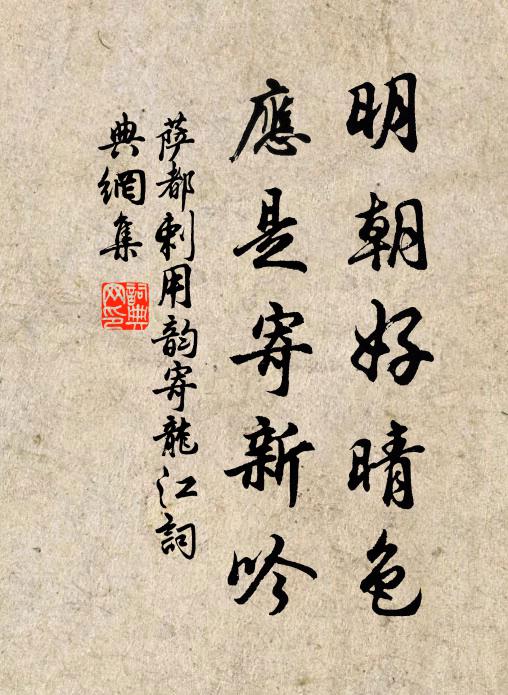 明朝好晴色
應是寄新吟
薩都剌用韵寄龍江詞
典網集
詞典網印